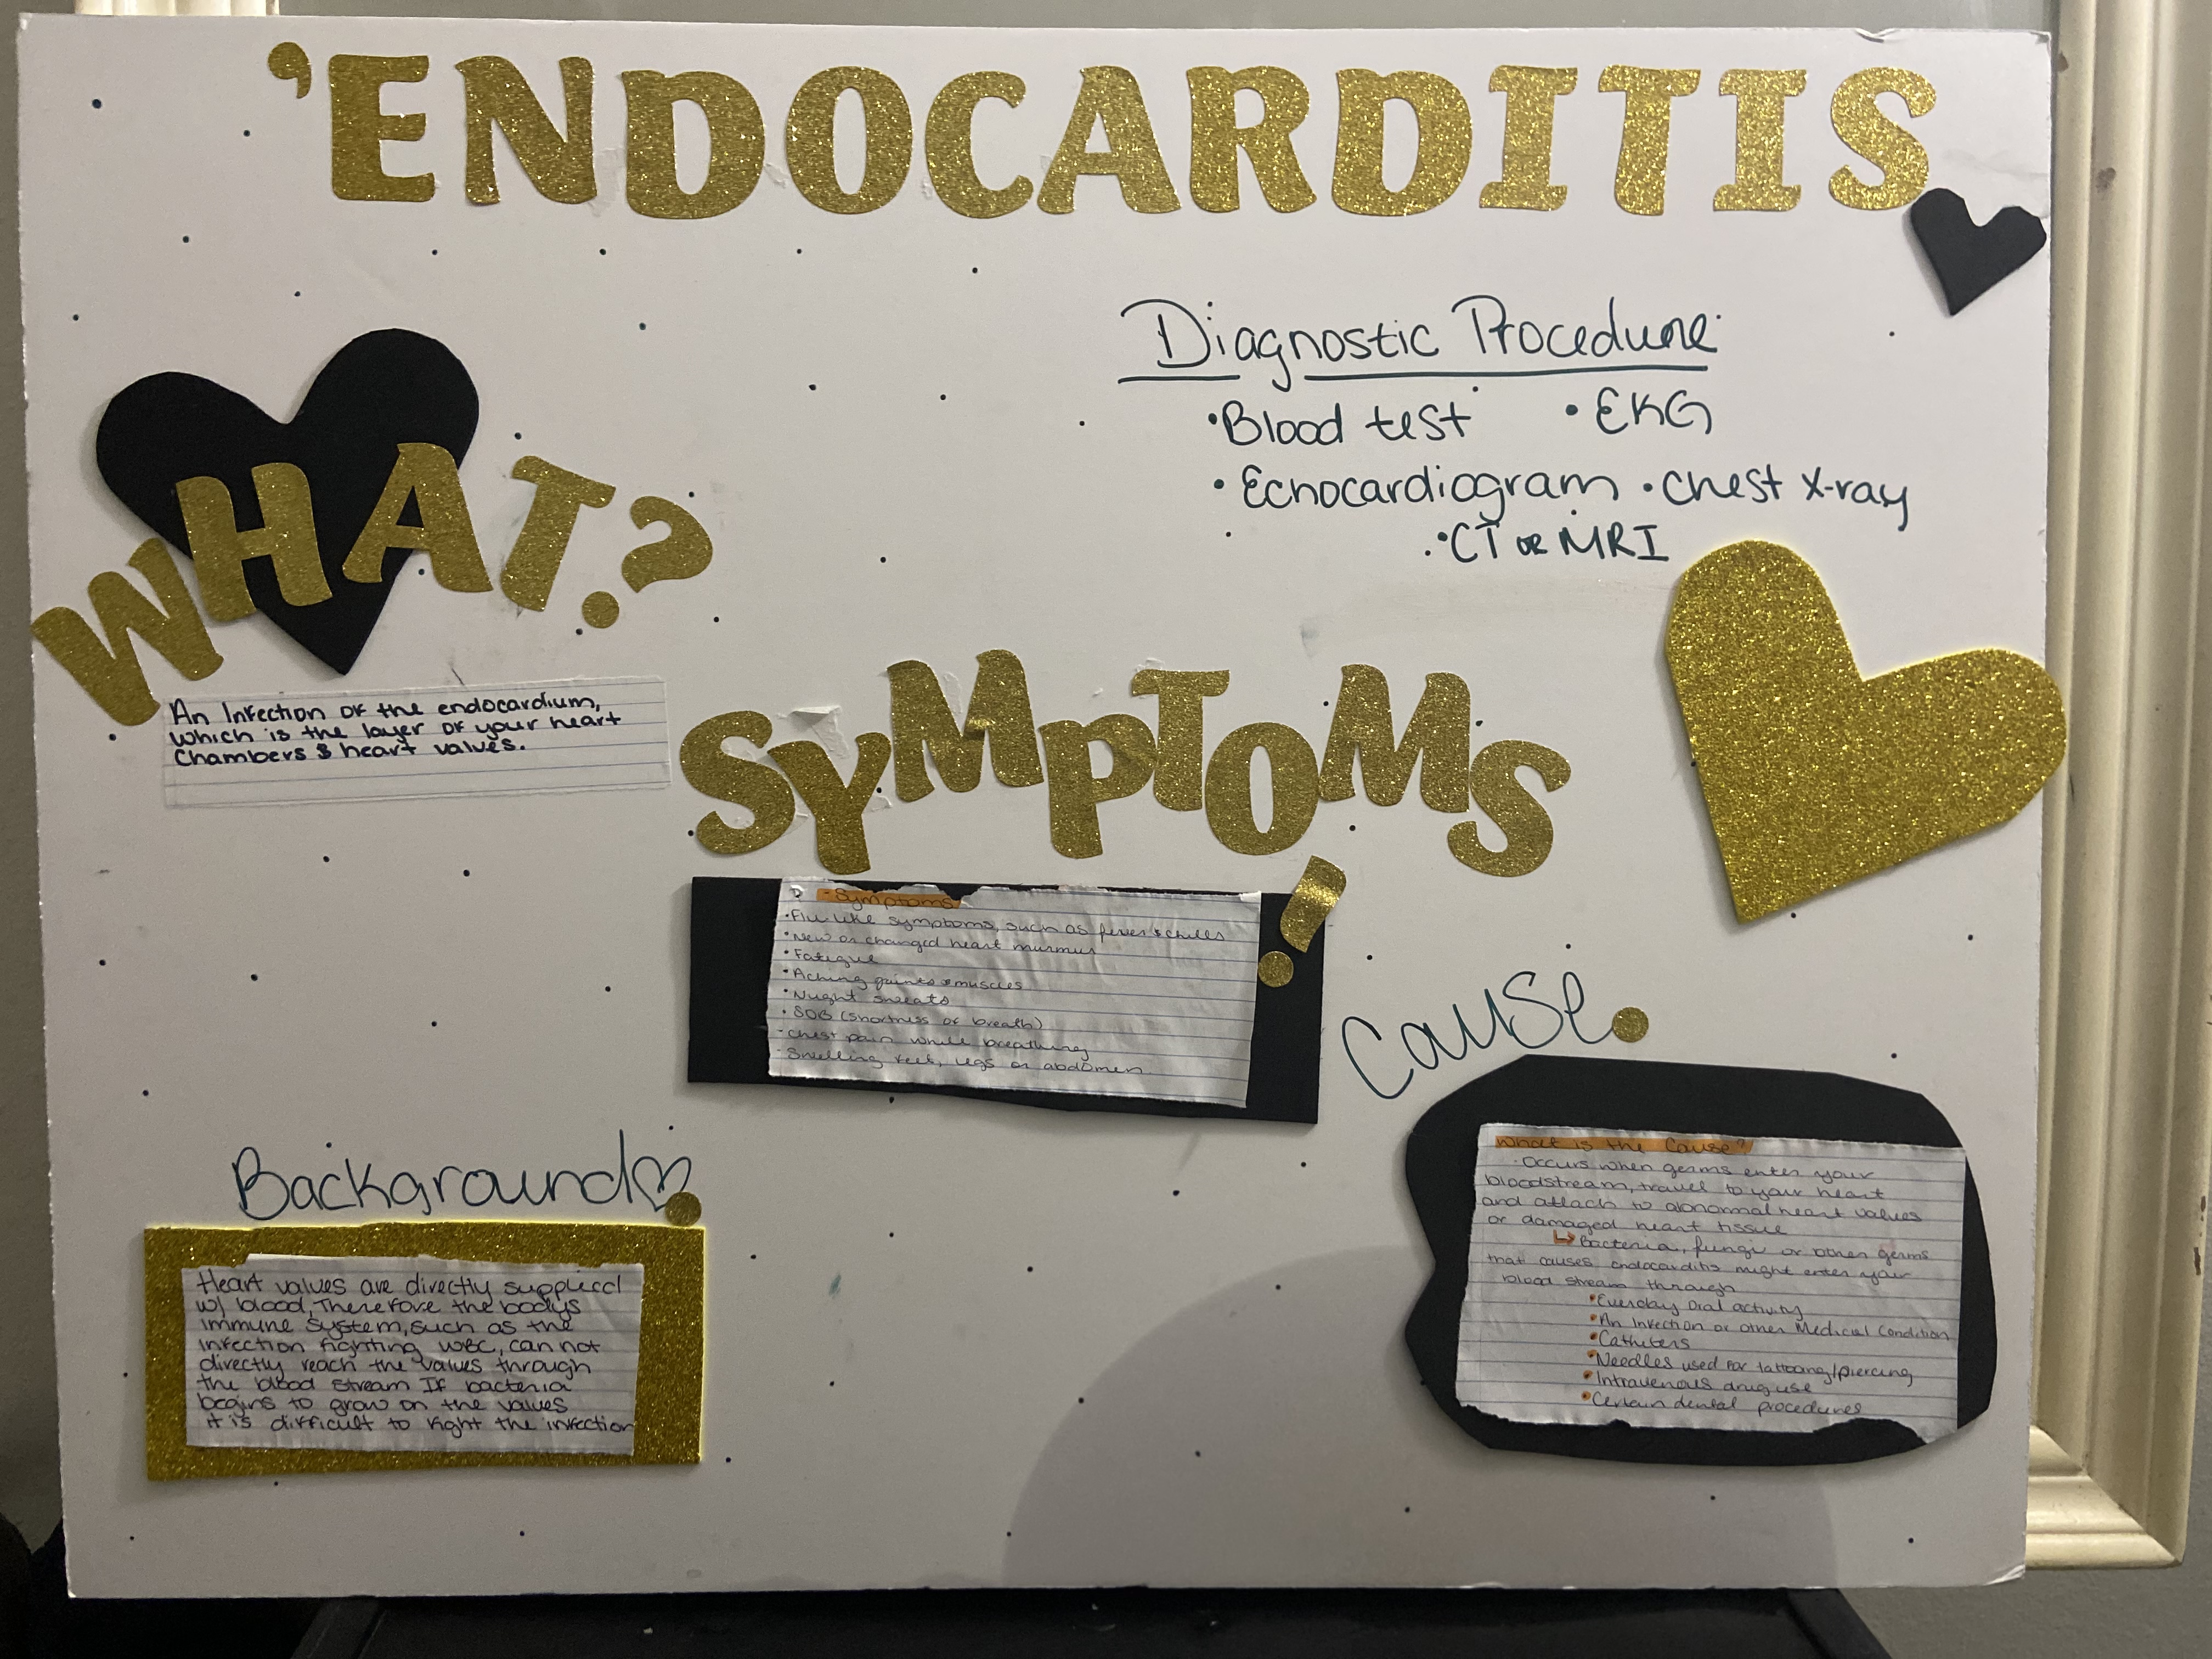 'ENDOCARDITIS
Diagnostic Procedure
•Blood test •EKG
•Echocardiogram •chest x-ray
•CT OR MRI
WHAT?
An Infection of the endocardium,
which is the layer of your heart
Chambers & heart valves.
SYMPTOMS!
- Symptoms
•Flu like symptoms, such as fever & chills
•New or changed heart murmur
•Fatigue
•Aching joints & muscles
•Night sweats
•SOB (shortness of breath)
-chest pain while breathing
-Swelling feet, legs or abdomen
Cause
What is the Cause?
•Occurs when germs enter your
bloodstream, travel to your heart
and attach to abnormal heart valves
or damaged heart tissue
↳Bacteria, fungi or other germs
that causes endocarditis might enter your
blood stream through
•Everyday Oral activity
•An Infection or other Medical Condition
•Catheters
•Needles used for tattooing/piercing
•Intravenous drug use
•Certain dental procedures
Background♡
Heart valves are directly supplied
w/ blood, Therefore the bodys
immune system, such as the
infection fighting WBC, can not
directly reach the valves through
the blood stream If bacteria
begins to grow on the valves
it is difficult to fight the infection